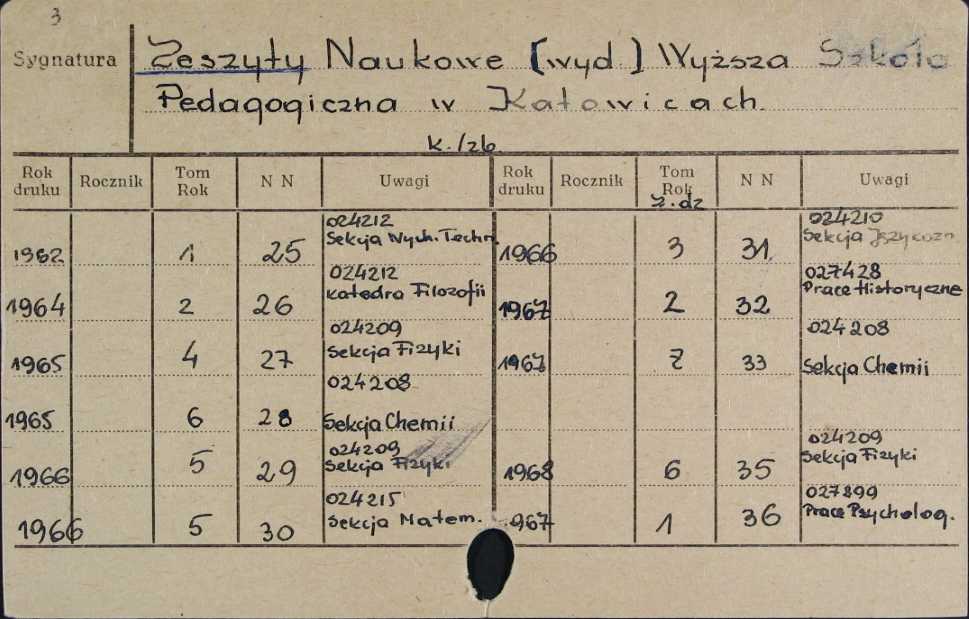 3
Sygnatura
Zeszyty Naukowe [wyd] Wyższa Szkoła
Pedagogiczna w Katowicach.
k./zb.
Rok druku Rocznik Tom Rok N N Uwagi Rok druku Rocznik Tom Rok N N Uwagi
z.dz
024212
1962 1 25 Sekcja Wych. Techn.
024212
1964 2 26 Katedra Filozofii
024209
1965 4 27 Sekcja Fizyki
024208
1965 6 28 Sekcja Chemii
024209
1966 5 29 Sekcja Fizyki
024215
1966 5 30 Sekcja Matem.
024210
1966 3 31 Sekcja Językozn
027428
1967 2 32 Prace Historyczne
024208
1967 7 33 Sekcja Chemii
024209
1968 6 35 Sekcja Fizyki
027899
1967 1 36 Prace Psycholog.